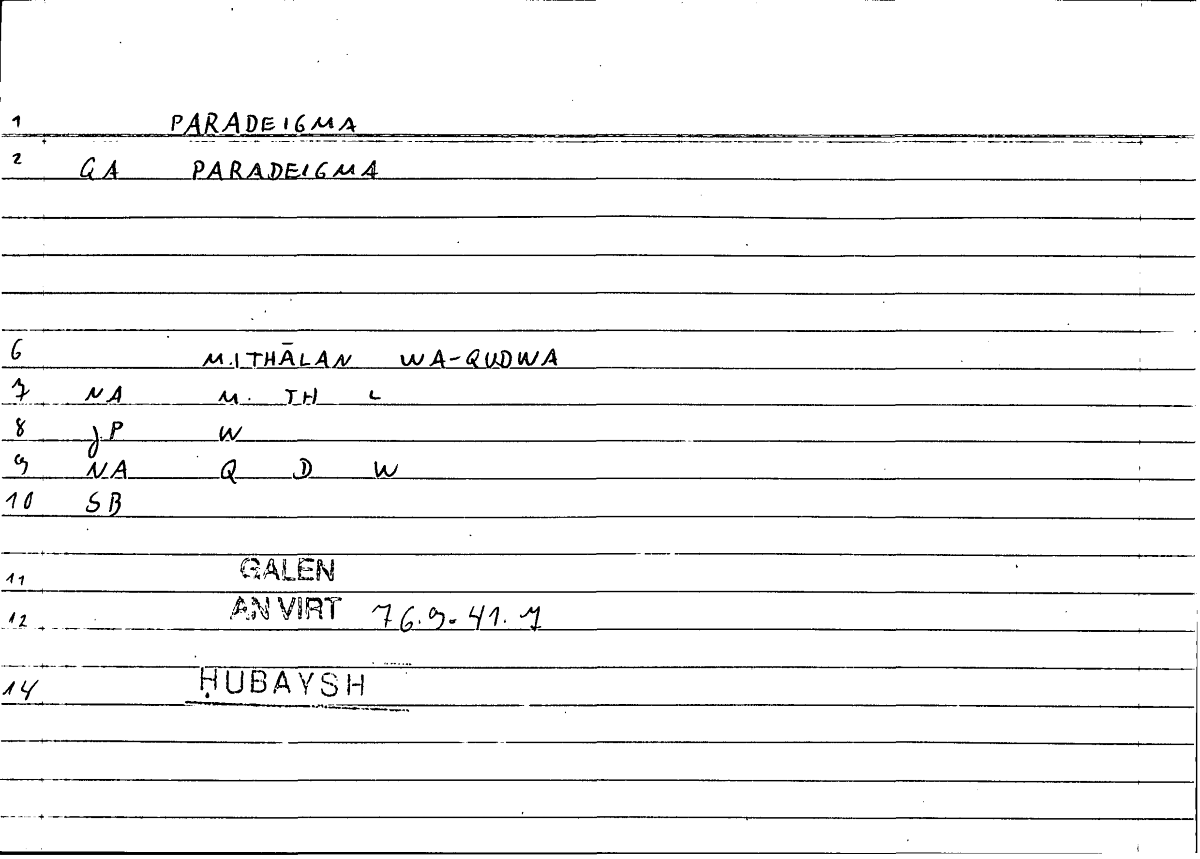 1 PARADEIGMA
2 GA PARADEIGMA
6 MITHĀLAN WA-QUDWA
7 NA M TH L
8 JP W
9 NA Q D W
10 SB
11 GALEN
12 AN VIRT 76.9-41.7
14 ḤUBAYSH